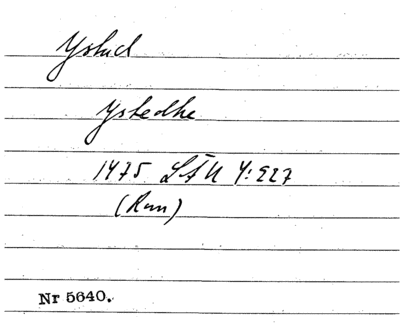 Ystad
Ystedhe
1475 STÄ 4:227
(Run)
Nr 5640.